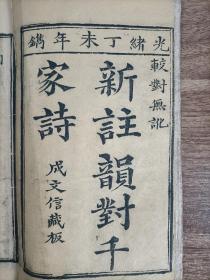 光緒丁未年鐫
較對無訛
新註韻對千
家詩
成文信藏板